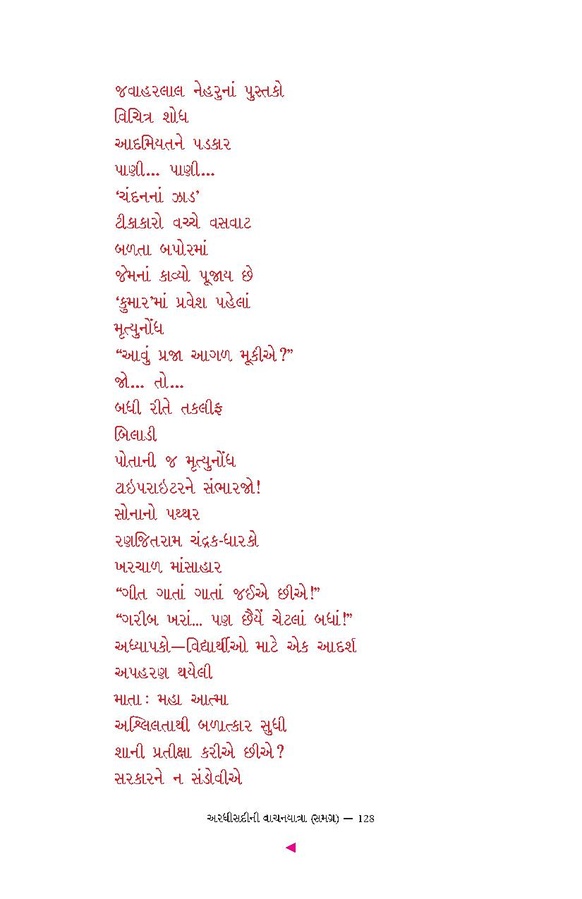 જવાહરલાલ નેહરુનાં પુસ્તકો
વિચિત્ર શોધ
આદમિયતને પડકાર
પાણી... પાણી...
‘ચંદનનાં ઝાડ’
ટીકાકારો વચ્ચે વસવાટ
બળતા બપોરમાં
જેમનાં કાવ્યો પૂજાય છે
‘કુમાર’માં પ્રવેશ પહેલાં
મૃત્યુનોંધ
“આવું પ્રજા આગળ મૂકીએ?”
જો... તો...
બધી રીતે તકલીફ
બિલાડી
પોતાની જ મૃત્યુનોંધ
ટાઇપરાઇટરને સંભારજો!
સોનાનો પથ્થર
રણજિતરામ ચંદ્રક-ધારકો
ખરચાળ માંસાહાર
“ગીત ગાતાં ગાતાં જઈએ છીએ!”
“ગરીબ ખરાં... પણ છૈયેં ચેટલાં બધાં!”
અધ્યાપકો—વિદ્યાર્થીઓ માટે એક આદર્શ
અપહરણ થયેલી
માતા : મહા આત્મા
અશ્લિલતાથી બળાત્કાર સુધી
શાની પ્રતીક્ષા કરીએ છીએ?
સરકારને ન સંડોવીએ
અરધીસદીની વાચનયાત્રા (સમગ્ર) — 128